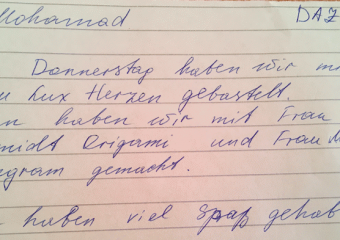 Mohamad DAZ
Donnerstag haben wir m
Lux Herzen gebastelt.
n haben wir mit Frau
midt Origami und Frau M
gram gemacht.
haben viel Spaß gehab